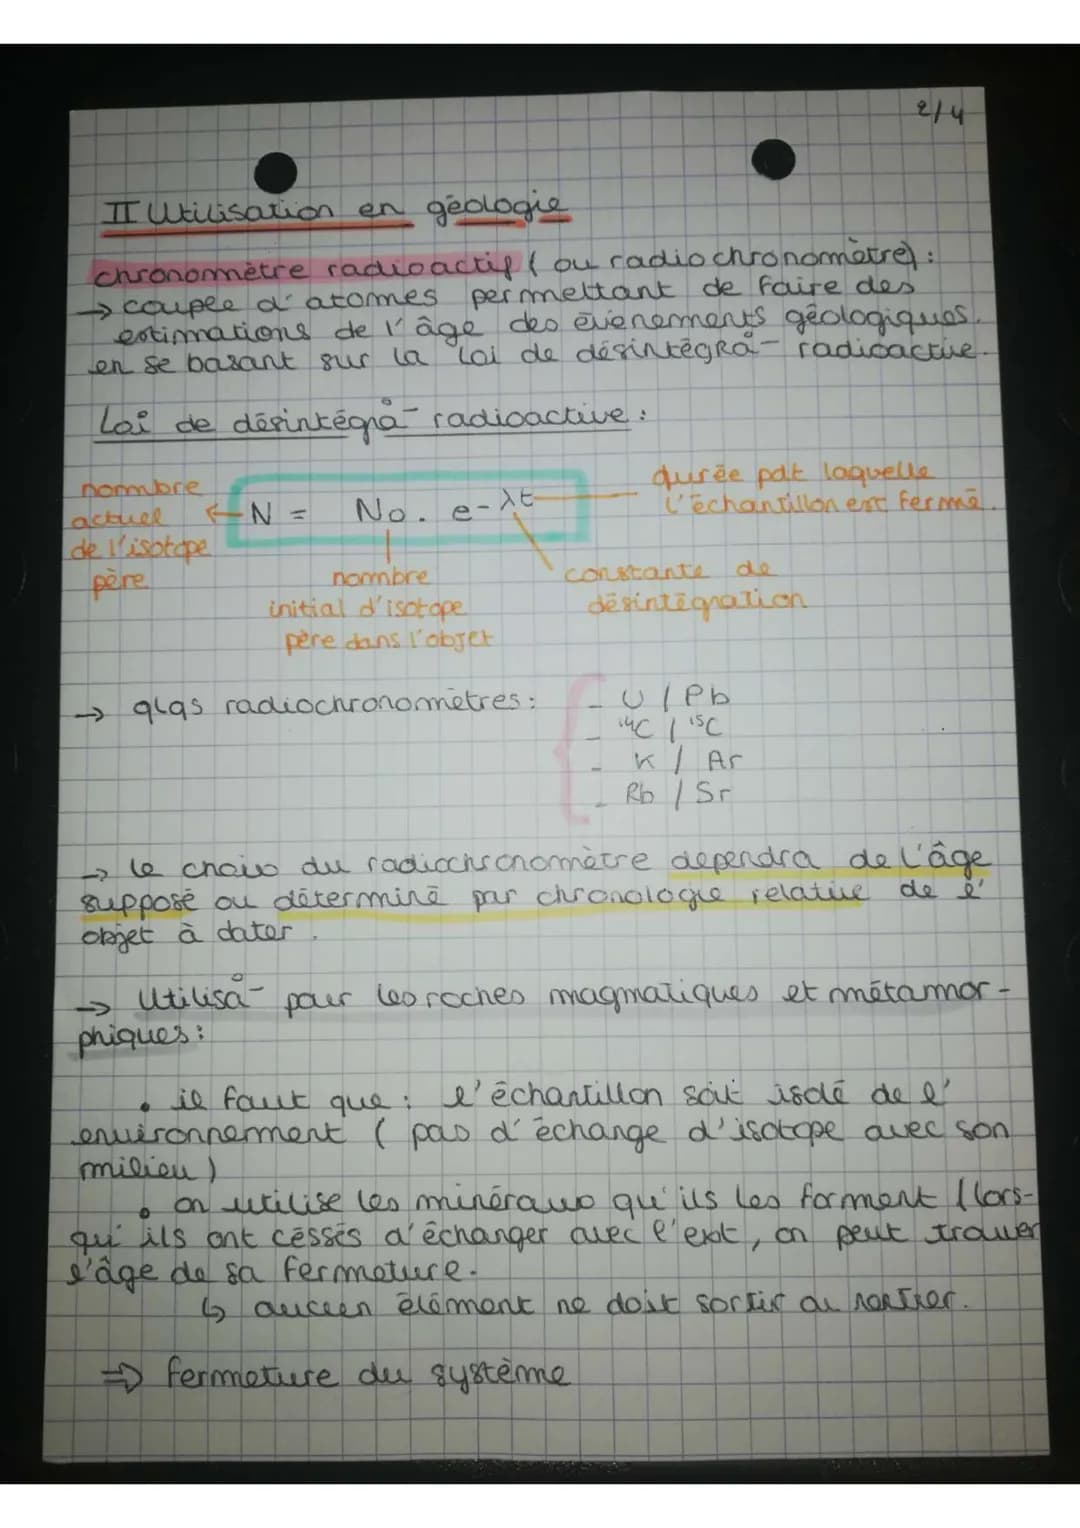 2/4
II Utilisation en géologie
chronomètre radioactif ( ou radiochronomètre) :
→ couple d'atomes permettant de faire des
estimations de l'âge des évènements géologiques.
en se basant sur la loi de désintégrå- radioactive.
Loi de désintégrå- radioactive :
nombre
actuel
de l'isotope
père
N = No. e-λt
durée pdt laquelle
l'échantillon est fermé.
nombre
initial d'isotope
père dans l'objet
constante de
désintégration
→ qlqs radiochronomètres :
- U / Pb
- ¹⁴C / ¹⁵C
- K / Ar
- Rb / Sr
→ le choix du radiochronomètre dependra de l'âge
supposé ou déterminé par chronologie relative de l'
objet à dater.
→ Utiliså- pour les roches magmatiques et métamor-
phiques :
• il faut que : l'échantillon soit isolé de l'
environnement ( pas d'échange d'isotope avec son
milieu )
• on utilise les minéraux qu'ils les forment ( lors-
qu'ils ont céssés d'échanger avec l'ext, on peut trouver
l'âge de sa fermeture.
↳ aucun élément ne doit sortir ou rentrer.
⇒ fermeture du système